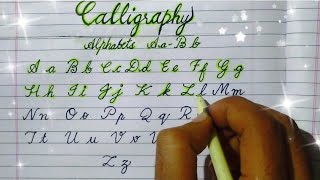 Calligraphy
Alphabets Aa-Bb
Aa Bb Cc Dd Ee Ff Gg
Hh Ii Jj Kk Ll Mm
Nn Oo Pp Qq R
Tt Uu Vv
Zz